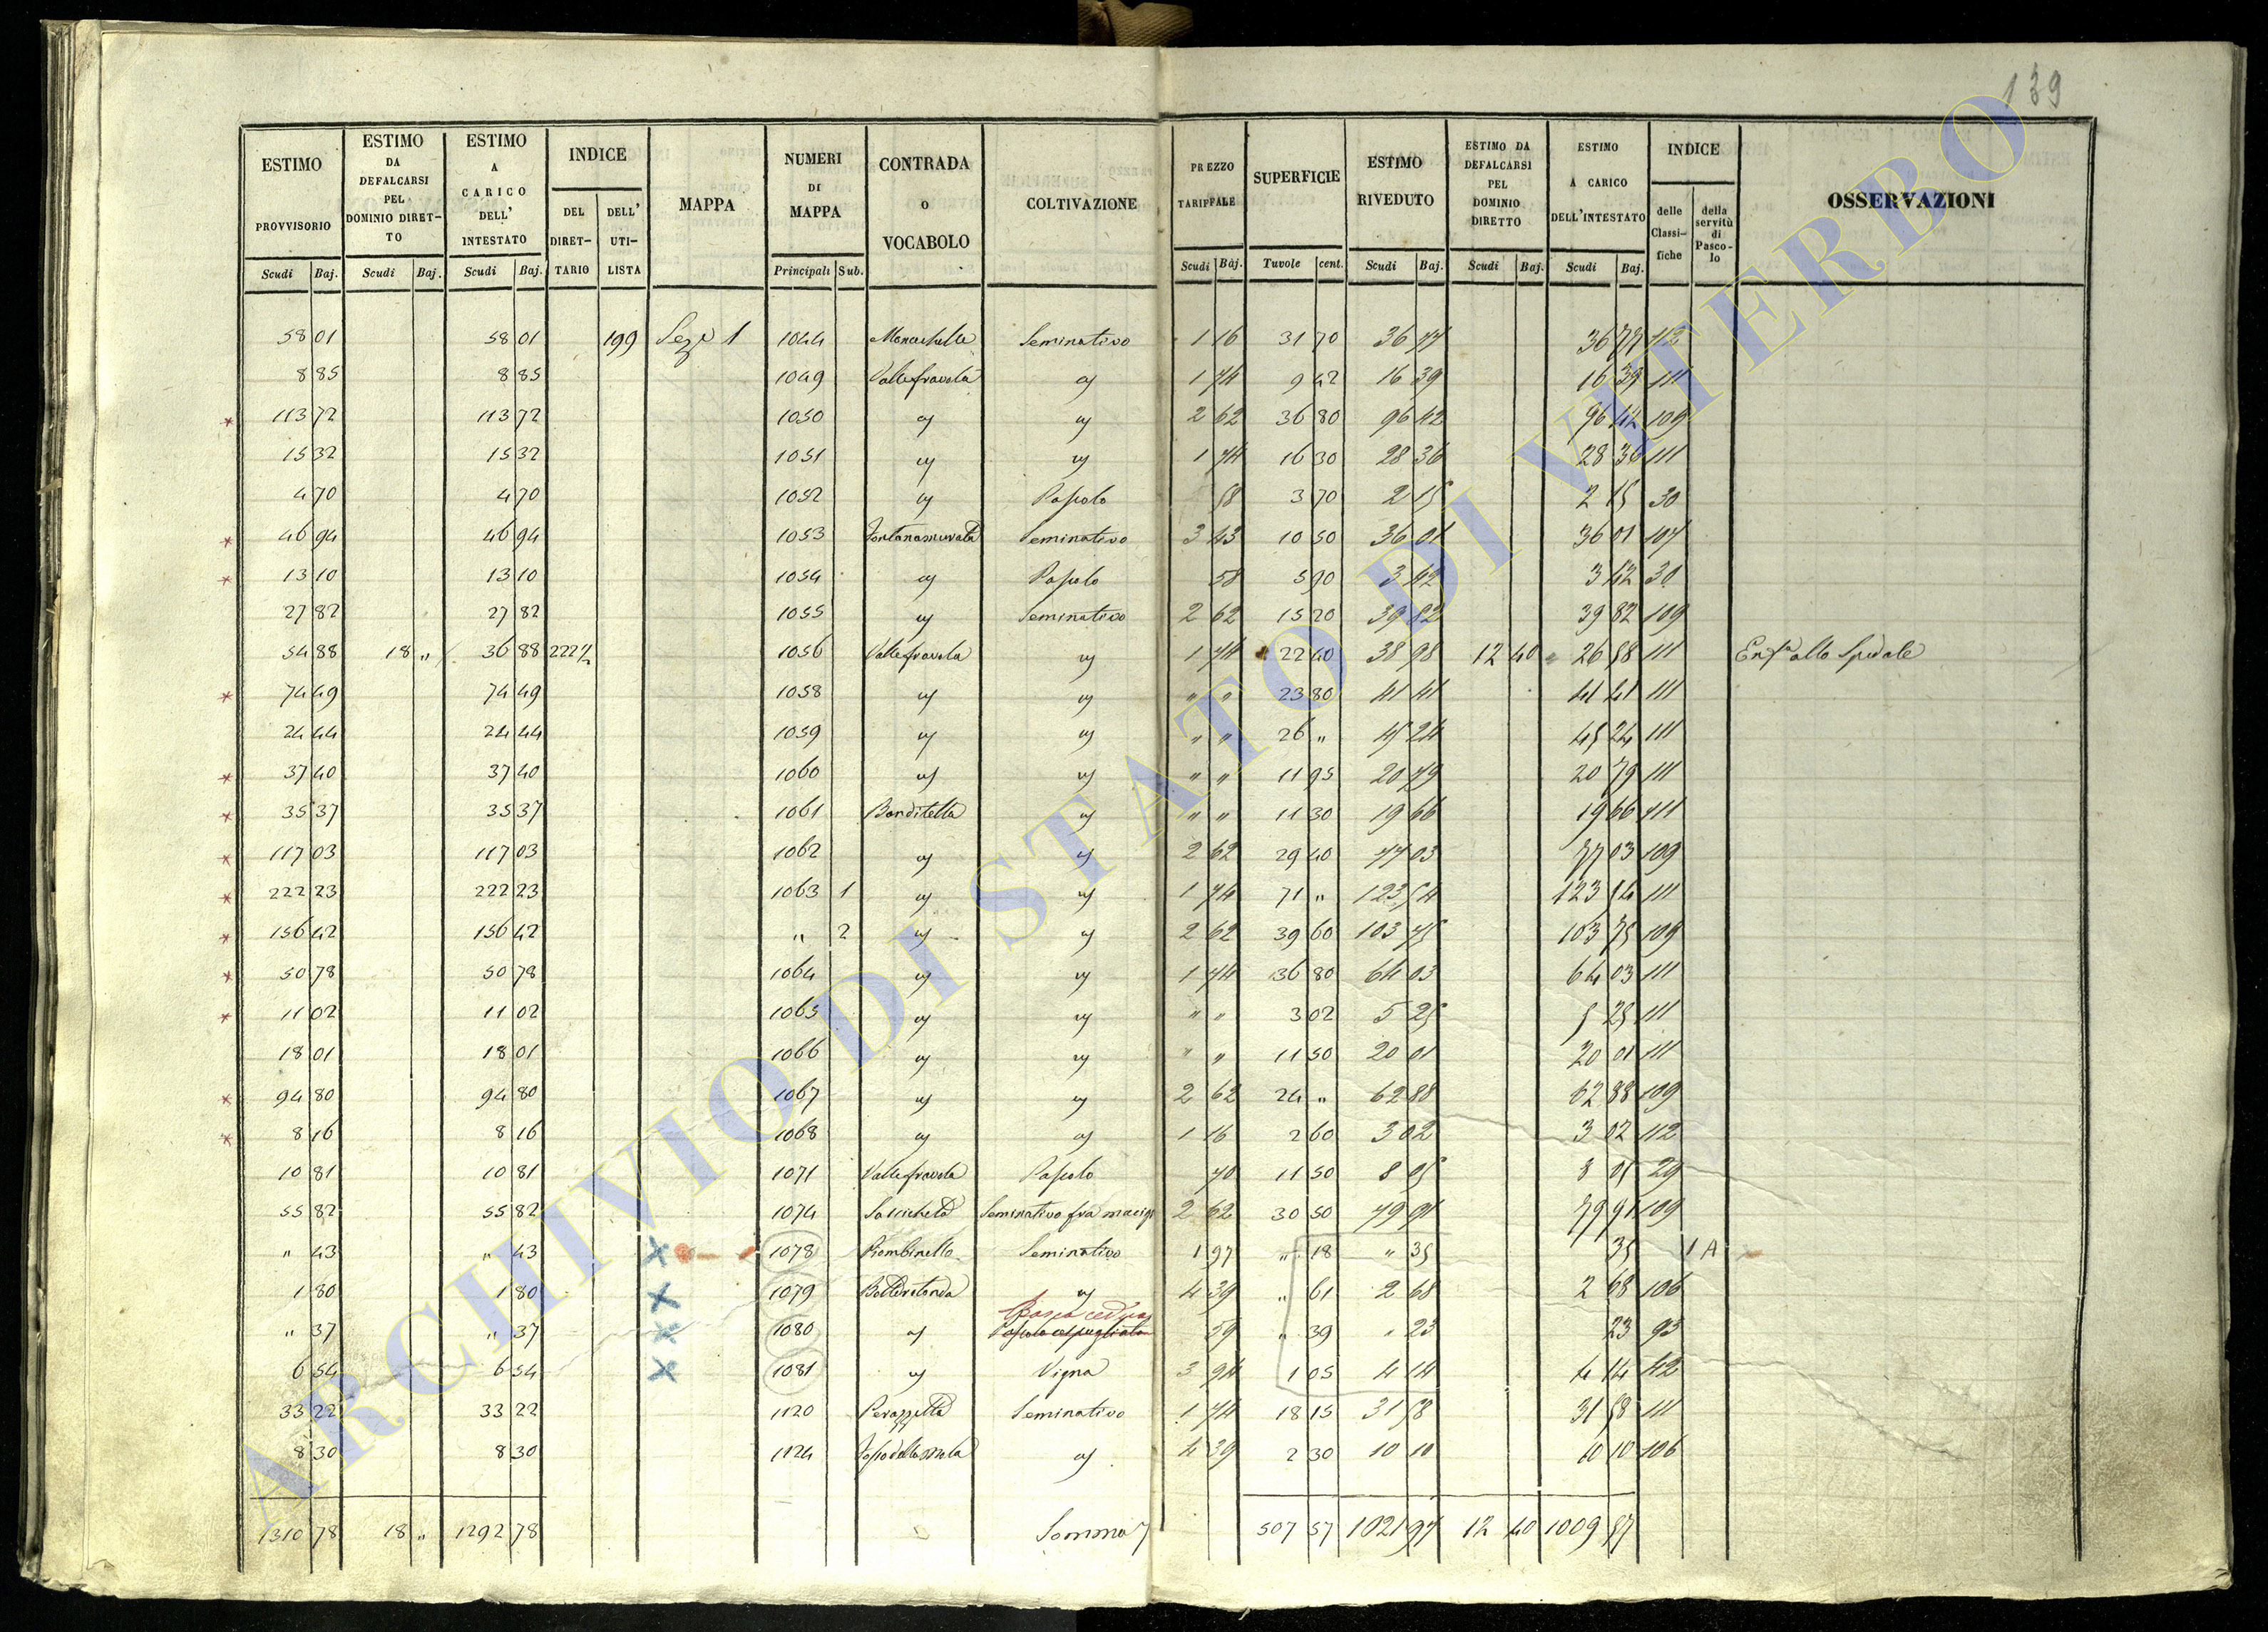 139
ESTIMO PROVVISORIO Scudi Baj. | ESTIMO DA DEFALCARSI PEL DOMINIO DIRET-TO Scudi Baj. | ESTIMO A CARICO DELL' INTESTATO Scudi Baj. | INDICE DEL DIRET-TARIO | DELL' UTI-LISTA | MAPPA | NUMERI DI MAPPA Principali Sub. | CONTRADA O VOCABOLO | COLTIVAZIONE | PREZZO TARIFFALE Scudi Baj. | SUPERFICIE Tavole cent. | ESTIMO RIVEDUTO Scudi Baj. | ESTIMO DA DEFALCARSI PEL DOMINIO DIRETTO Scudi Baj. | ESTIMO A CARICO DELL'INTESTATO Scudi Baj. | INDICE delle Classi-fiche | della servitù di Pasco-lo | OSSERVAZIONI
58 01 58 01 199 Sez. 1 1044 Seminativo 1 16 31 70 36 77 36 77 112
8 85 8 85 1049 Vallefravola " 1 74 9 42 16 39 16 39 111
* 113 72 113 72 1050 " " 2 62 36 80 96 42 96 42 109
15 32 15 32 1051 " " 1 74 16 30 28 36 28 36 111
4 70 4 70 1052 " Pascolo 58 3 70 2 15 2 15 30
* 46 94 46 94 1053 Fontanamurata Seminativo 3 43 10 50 36 01 36 01 107
* 13 10 13 10 1054 " Pascolo 58 5 90 3 42 3 42 30
27 82 27 82 1055 " Seminativo 2 62 15 20 39 82 39 82 109
54 88 18 " 36 88 1056 Vallefravola " 1 74 22 40 38 98 12 40 26 58 111 Enf.a allo Spedale
* 74 49 74 49 1058 " " " " 23 80 41 41 41 41 111
24 44 24 44 1059 " " " " 26 " 45 24 45 24 111
* 37 40 37 40 1060 " " " " 11 95 20 79 20 79 111
* 35 37 35 37 1061 Banditella " " " 11 30 19 66 19 66 111
* 117 03 117 03 1062 " " 2 62 29 40 77 03 77 03 109
* 222 23 222 23 1063 1 " " 1 74 71 " 123 54 123 54 111
* 156 42 156 42 " 2 " " 2 62 39 60 103 75 103 75 109
* 50 78 50 78 1064 " " 1 74 36 80 64 03 64 03 111
* 11 02 11 02 1065 " " " " 3 02 5 25 5 25 111
18 01 18 01 1066 " " " " 11 50 20 01 20 01 111
* 94 80 94 80 1067 " " 2 62 24 " 62 88 62 88 109
* 8 16 8 16 1068 " " 1 16 2 60 3 02 3 02 112
10 81 10 81 1071 Vallefravola Pascolo 70 11 50 8 05 8 05 29
55 82 55 82 1074 Seminativo fra macigni 2 62 30 50 79 91 79 91 109
" 43 " 43 X 1078 Piombinello Seminativo 1 97 " 18 " 35 35 1 A
1 80 1 80 X 1079 " 4 39 " 61 2 68 2 68 106
Bosco ceduo
" 37 " 37 X 1080 " Pascolo cespugliato 59 " 39 " 23 23 93
6 54 6 54 X 1081 " Vigna 3 94 1 05 4 14 4 14 42
33 22 33 22 1120 Perazzetta Seminativo 1 74 18 15 31 58 31 58 111
8 30 8 30 1124 " 4 39 2 30 10 10 10 10 106
1310 78 18 " 1292 78 Somma 507 57 1021 97 12 40 1009 57
ARCHIVIO DI STATO DI VITERBO